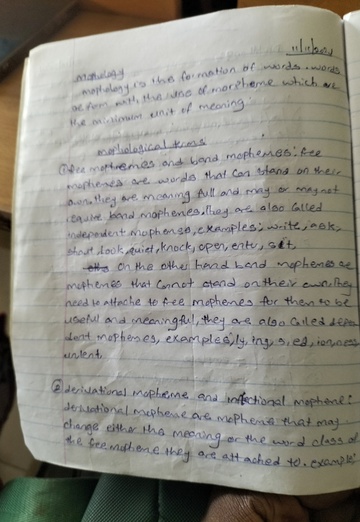 11/11/
morphology
mophology is the formation of words. words
are form with the use of morcheme which are
the minimum unit of meaning.
mophological terms
① free mophremes and band mophemes: free
mophemes are words that can stand on their
own, they are meaning full and may or may not
require band mophemes, they are also called
independent mophense, examples; write, ask,
shout, look, quiet, knock, open, enter, sit,
On the other hand band mophemes are
mophemes that cannot stand on their own, they
need to attache to free mophemes for them to be
useful and meaningful, they are also called depen
dant mophemes, examples, ly, ing, s, ed, ion, ness
un, ent.
② derivational mopheme and infectional mopheme:
derivational mopheme are mophems that may
change either the meaning or the word class of
the free motheme they are attached to. example: